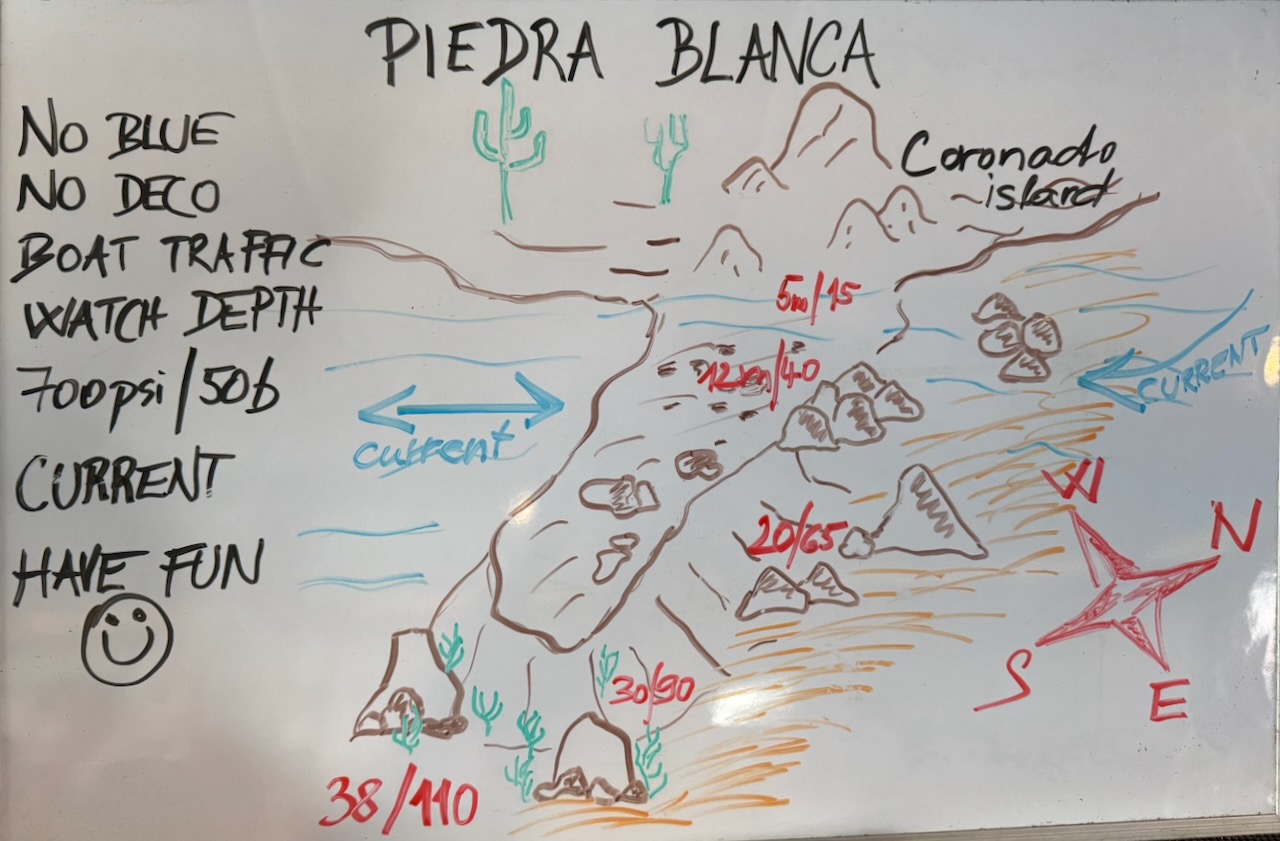 PIEDRA BLANCA
NO BLUE
NO DECO
BOAT TRAFFIC
WATCH DEPTH
700psi/50b
CURRENT
HAVE FUN
Coronado
island
5m/15
12m/40
CURRENT
current
20/65
30/90
38/110
W
N
S
E